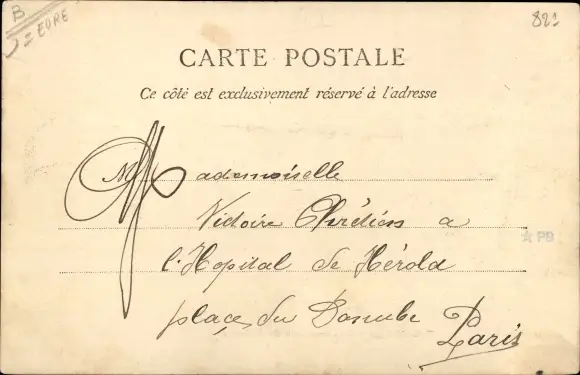 B
J = EURE
821
CARTE POSTALE
Ce côté est exclusivement réservé à l'adresse
Mademoiselle
Victoire Chrétien a
l'Hopital de Hérold
place du Danube Paris
PB